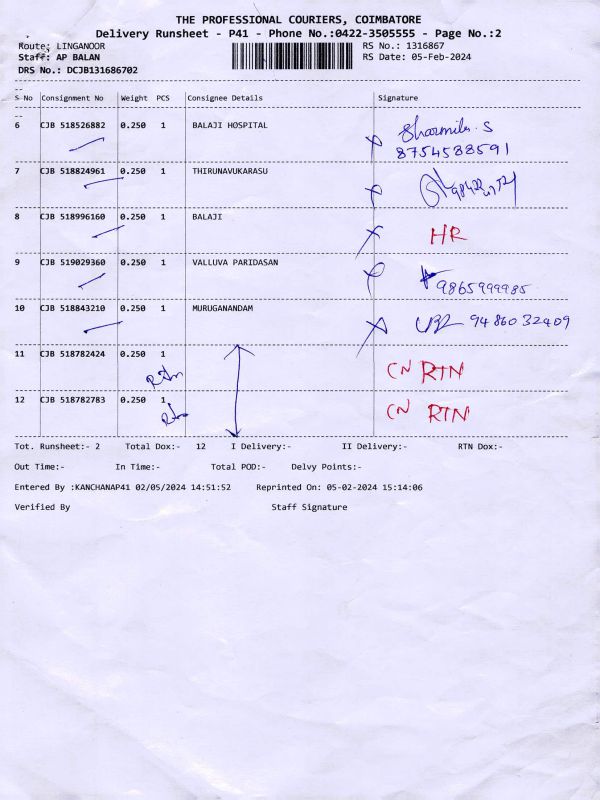 THE PROFESSIONAL COURIERS, COIMBATORE
Delivery Runsheet - P41 - Phone No.:0422-3505555 - Page No.:2
Route: LINGANOOR RS No.: 1316867
Staff: AP BALAN RS Date: 05-Feb-2024
DRS No.: DCJB131686702
S No Consignment No Weight PCS Consignee Details Signature
6 CJB 518526882 0.250 1 BALAJI HOSPITAL Sharmila. S
8754588591
7 CJB 518824961 0.250 1 THIRUNAVUKARASU
8 CJB 518996160 0.250 1 BALAJI HR
9 CJB 519029360 0.250 1 VALLUVA PARIDASAN 9865999985
10 CJB 518843210 0.250 1 MURUGANANDAM 9486032409
11 CJB 518782424 0.250 1 Rtn CN RTN
12 CJB 518782783 0.250 1 Rtn CN RTN
Tot. Runsheet:- 2 Total Dox:- 12 I Delivery:- II Delivery:- RTN Dox:-
Out Time:- In Time:- Total POD:- Delvy Points:-
Entered By :KANCHANAP41 02/05/2024 14:51:52 Reprinted On: 05-02-2024 15:14:06
Verified By Staff Signature